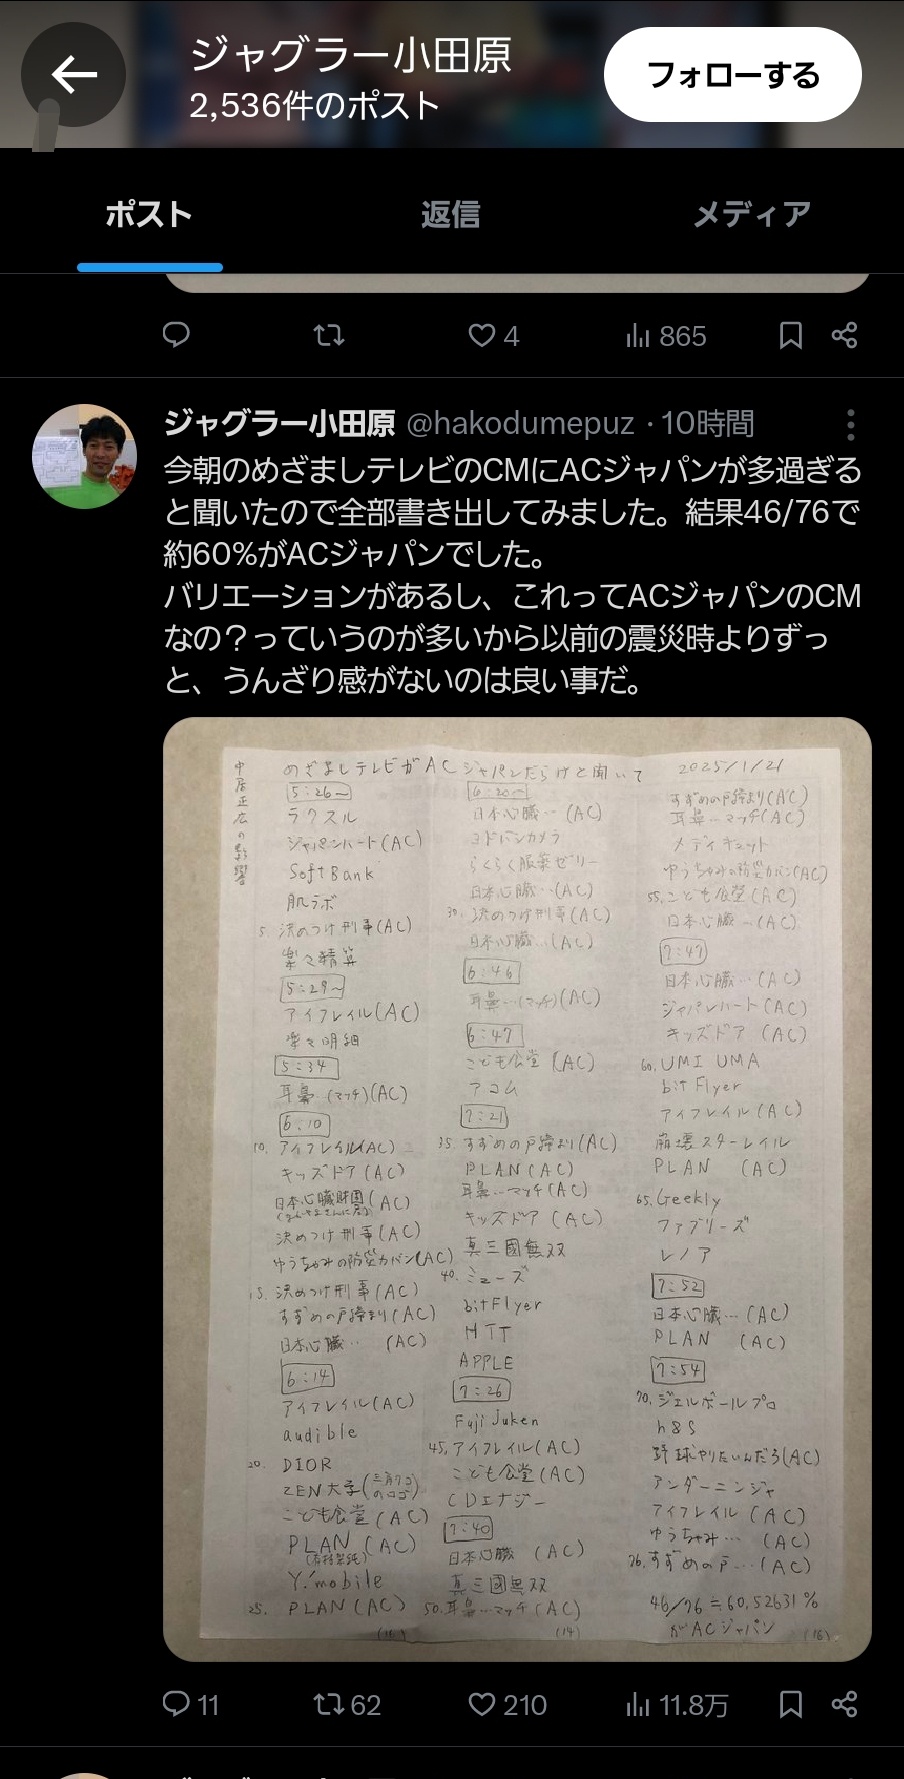 ジャグラー小田原
2,536件のポスト
フォローする
ポスト
返信
メディア
4
865
ジャグラー小田原 @hakodumepuz ・10時間
今朝のめざましテレビのCMにACジャパンが多過ぎる
と聞いたので全部書き出してみました。結果46/76で
約60%がACジャパンでした。
バリエーションがあるし、これってACジャパンのCM
なの？っていうのが多いから以前の震災時よりずっ
と、うんざり感がないのは良い事だ。
中居正広の影響
めざましテレビがACジャパンだらけと聞いて
2025/1/21
5:26〜
ラクスル
ジャパンハート(AC)
SoftBank
肌ラボ
5. 決めつけ刑事(AC)
楽々精算
5:29〜
アイフレイル(AC)
楽々明細
5:34
耳鼻…(マッチ)(AC)
6:10
10. アイフレイル(AC)
キッズドア(AC)
日本心臓財団(AC)
決めつけ刑事(AC)
ゆうちゃみの防災カバン(AC)
15. 決めつけ刑事(AC)
すずめの戸締まり(AC)
日本心臓… (AC)
6:14
アイフレイル(AC)
audible
20. DIOR
ZEN大学
こども食堂(AC)
PLAN(AC)
Y!mobile
25. PLAN(AC)
6:20〜
日本心臓…(AC)
ヨドバシカメラ
らくらく服薬ゼリー
日本心臓…(AC)
30. 決めつけ刑事(AC)
日本心臓…(AC)
6:46
耳鼻…(マッチ)(AC)
6:47
こども食堂(AC)
アコム
7:21
35. すずめの戸締まり(AC)
PLAN(AC)
耳鼻…マッチ(AC)
キッズドア(AC)
真三國無双
40. ミューズ
bitFlyer
HTT
APPLE
7:26
Fuji Juken
45. アイフレイル(AC)
こども食堂(AC)
CDエナジー
7:40
日本心臓 (AC)
真三國無双
50. 耳鼻…マッチ(AC)
(14)
すずめの戸締まり(AC)
耳鼻…マッチ(AC)
メディキュット
ゆうちゃみの防災カバン(AC)
55. こども食堂(AC)
日本心臓…(AC)
7:47
日本心臓…(AC)
ジャパンハート(AC)
キッズドア(AC)
60. UMI UMA
bitFlyer
アイフレイル(AC)
崩壊スターレイル
PLAN (AC)
65. Geekly
ファブリーズ
レノア
7:52
日本心臓…(AC)
PLAN (AC)
7:54
70. ジェルボールプロ
h&S
野球やりたいんだろ(AC)
アンダーニンジャ
アイフレイル(AC)
ゆうちゃみ… (AC)
76. すずめの戸…(AC)
46/76≒60,52631%
がACジャパン
(16)
11
62
210
11.8万